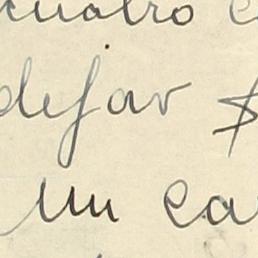 cuatro
dejar $
un ca